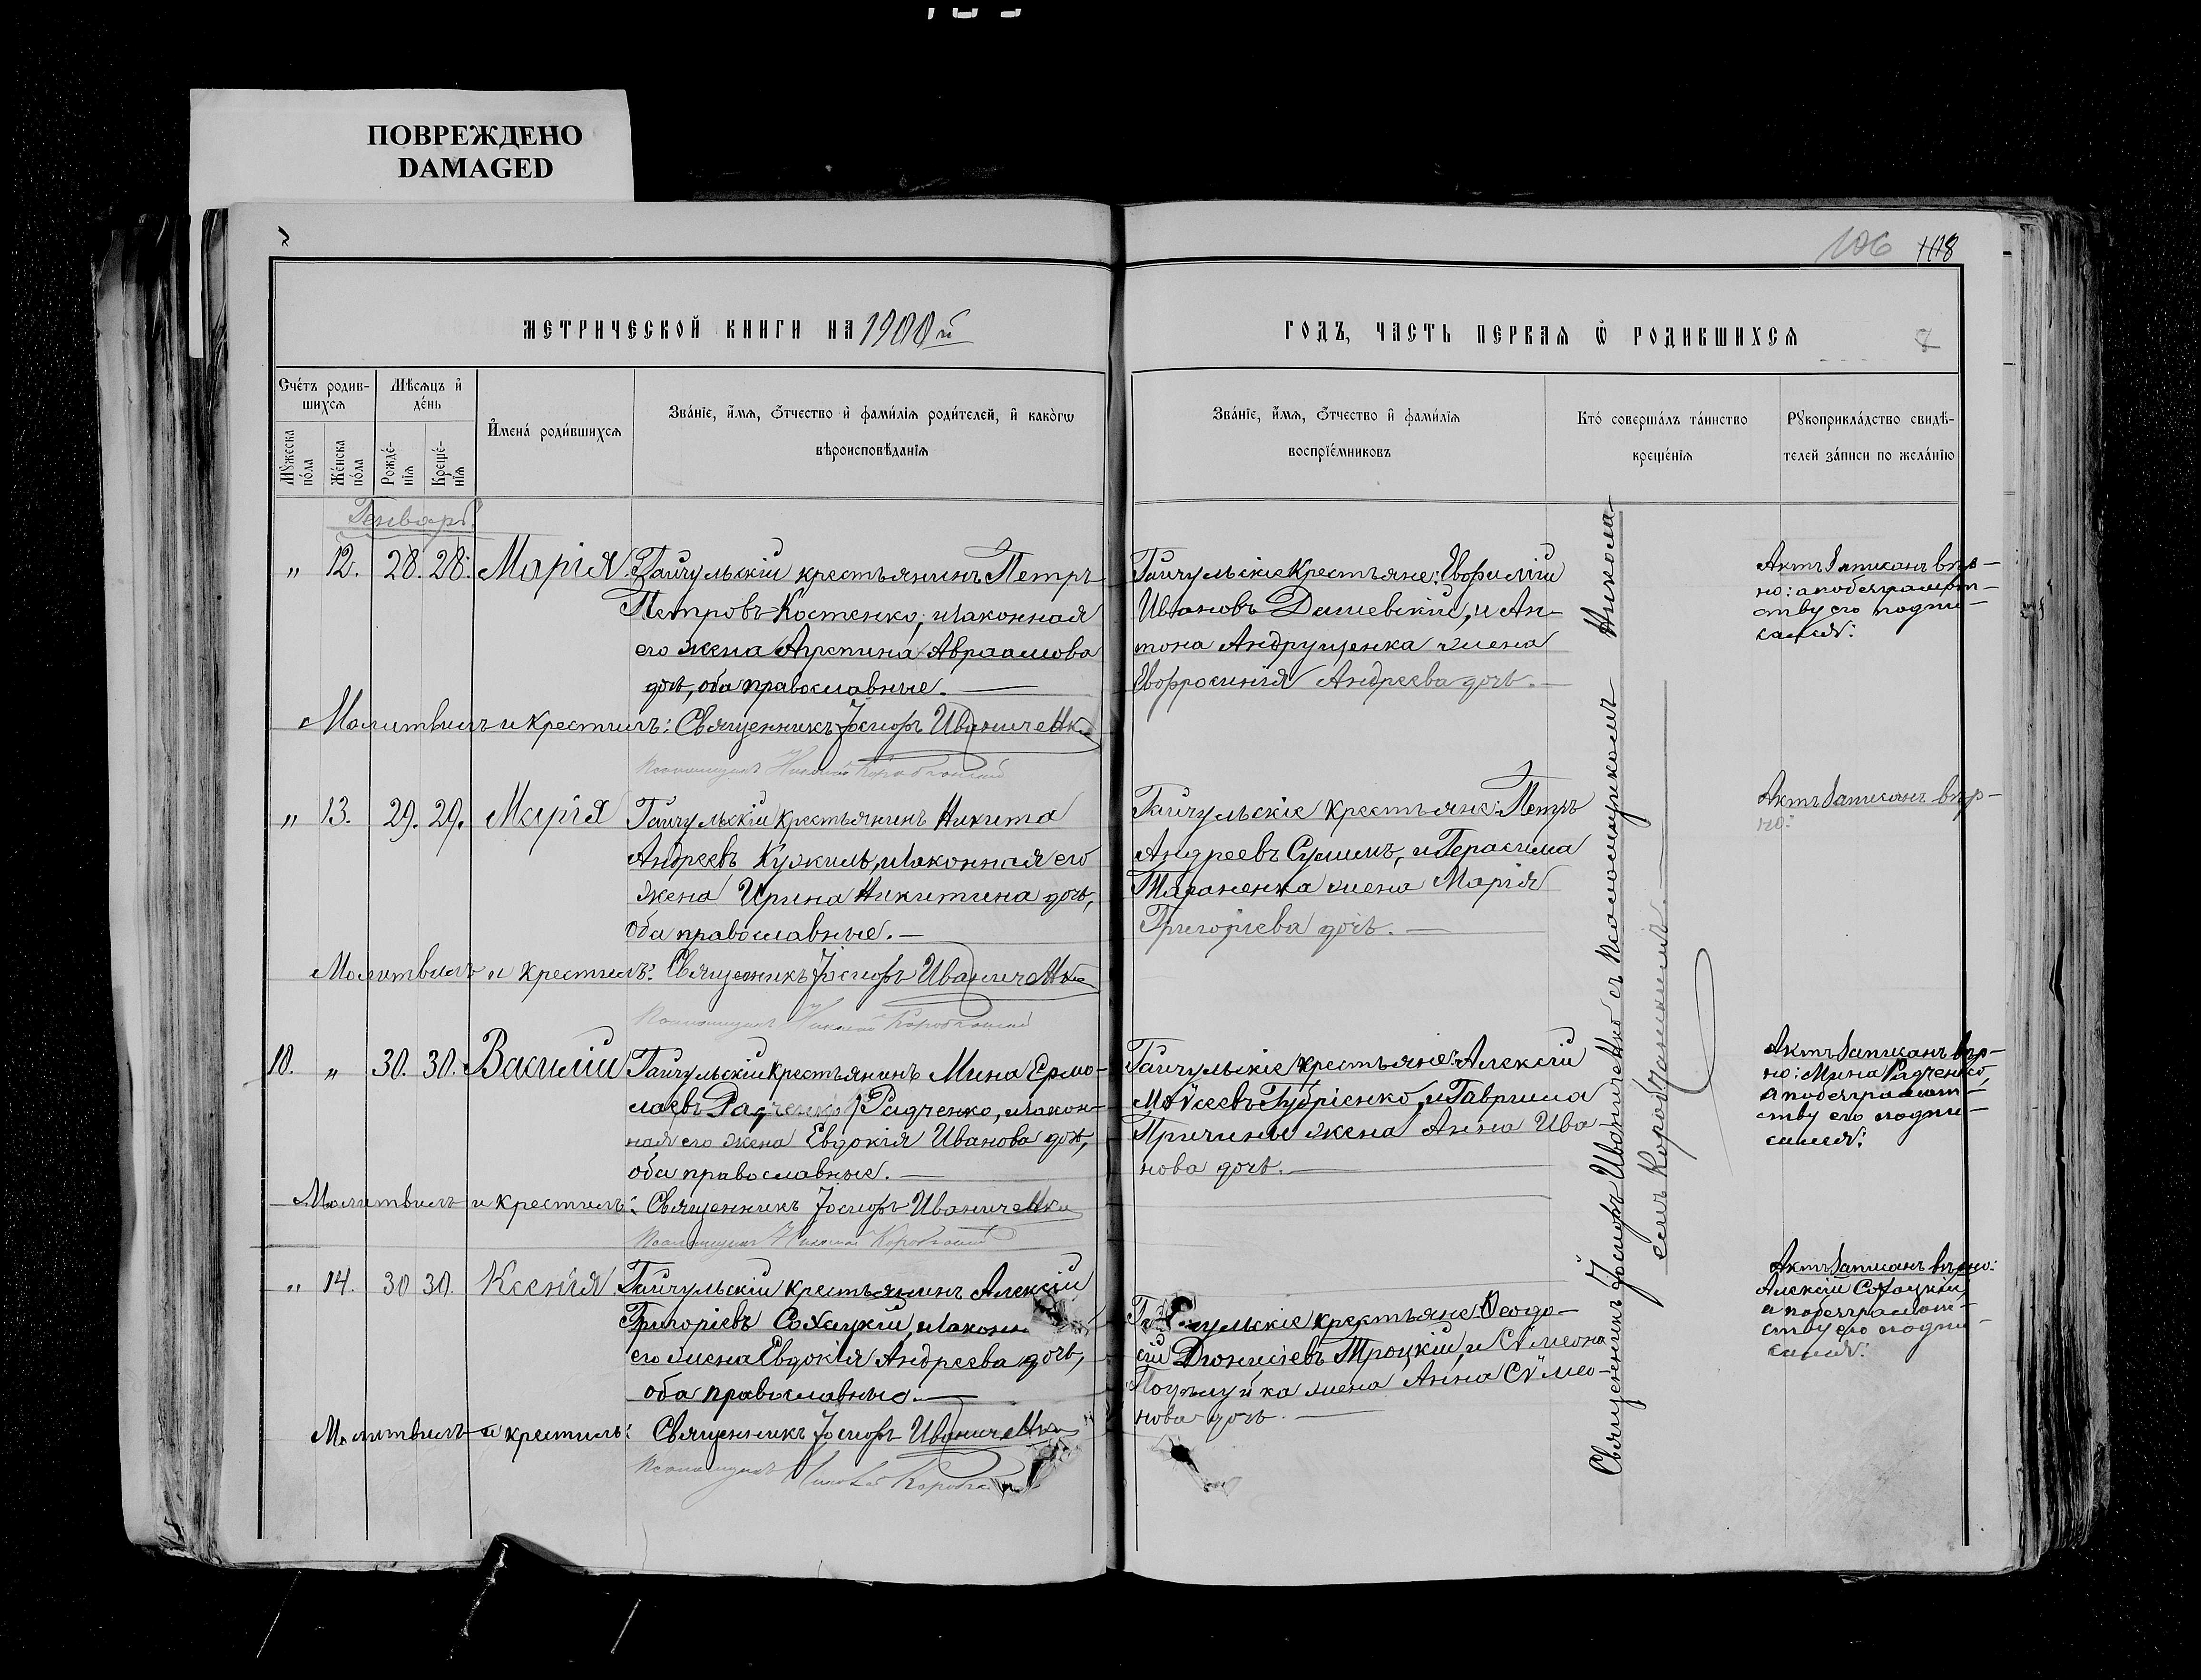 ПОВРЕЖДЕНО
DAMAGED
106 118
МЕТРИЧЕСКОЙ КНИГИ НА 1900й
ГОДЪ, ЧАСТЬ ПЕРВАЯ Ѿ РОДИВШИХСЯ
8
Счéтъ родив-
шихсѧ
Мѣсѧцъ и҆
дéнь
Мꙋ́жеска
пóла
Жéнска
пóла
Рождé-
нїѧ
Крещé-
нїѧ
И҆мена́ роди́вшихсѧ
Звáнїе, и҆́мѧ, ѻ҆́тчество и҆ фами́лїѧ роди́телей, и҆ какóгѡ
вѣроисповѣ́данїѧ
Звáнїе, и҆́мѧ, ѻ҆́тчество и҆ фами́лїѧ
воспрїе́мниковъ
Ктó совершáлъ тáинство
крещéнїѧ
Рꙋкоприклáдство свидѣ́-
телей зáписи по желáнїю
Генварь
„ 12. 28. 28. Марія. Гайчульскій крестьянинъ Петръ
Петровъ Костенко, и законная
его жена Агрепина Авраамова
дочь, оба православные. —
Молитвилъ и крестилъ: Священникъ Іосифъ Иваниченко
Псаломщикъ Николай Коробчанскій
Гайчульскіе крестьяне: Евфимій
Ивановъ Дашевскій, и Ан-
тона Андрущенка жена
Евфросинія Андреева дочь. —
Актъ записанъ вѣр-
но: а по безграмот-
ству его подпи-
сался:
„ 13. 29. 29. Марія Гайчульскій крестьянинъ Никита
Андреевъ Кужиль, и законная его
жена Ирина Никитина дочь,
оба православные. —
Молитвилъ и крестилъ: Священникъ Іосифъ Иваниченко
Псаломщикъ Николай Коробчанскій
Гайчульскіе крестьяне: Петръ
Андреевъ и Герасима
Тараненка жена Марія
Григоріева дочь. —
Актъ записанъ вѣр-
но:
10. „ 30. 30. Василій Гайчульскій крестьянинъ Мина Ермо-
лаевъ Радченко, и закон-
ная его жена Евдокія Иванова дочь,
оба православные. —
Молитвилъ и крестилъ: Священникъ Іосифъ Иваниченко
Псаломщикъ Николай Коробчанскій
Гайчульскіе крестьяне: Алексій
Моѵсеевъ Губріенко, и Гавриила
Причины жена Анна Ива-
нова дочь. —
Актъ записанъ вѣр-
но: Мина Радченко,
а по безграмот-
ству его подпи-
сался:
„ 14. 30 30. Ксенія Гайчульскій крестьянинъ Алексій
Григоріевъ Сохацкій, и законн
его жена Евдокія Андреева дочь,
оба православные. —
Молитвилъ и крестилъ: Священникъ Іосифъ Иваниченко
Псаломщикъ Николай
крестьяне: Ѳеодо-
сій Діонисіевъ Троцкій, и Сѵмеона
Поцѣлуйка жена Анна Сѵмео-
нова дочь. —
Актъ записанъ вѣрно:
Алексій Сохацкій,
а по безграмот-
ству его подпи-
сался:
Священникъ Іосифъ Иваниченко съ псаломщикомъ Никола-
емъ Коробчанскимъ. —